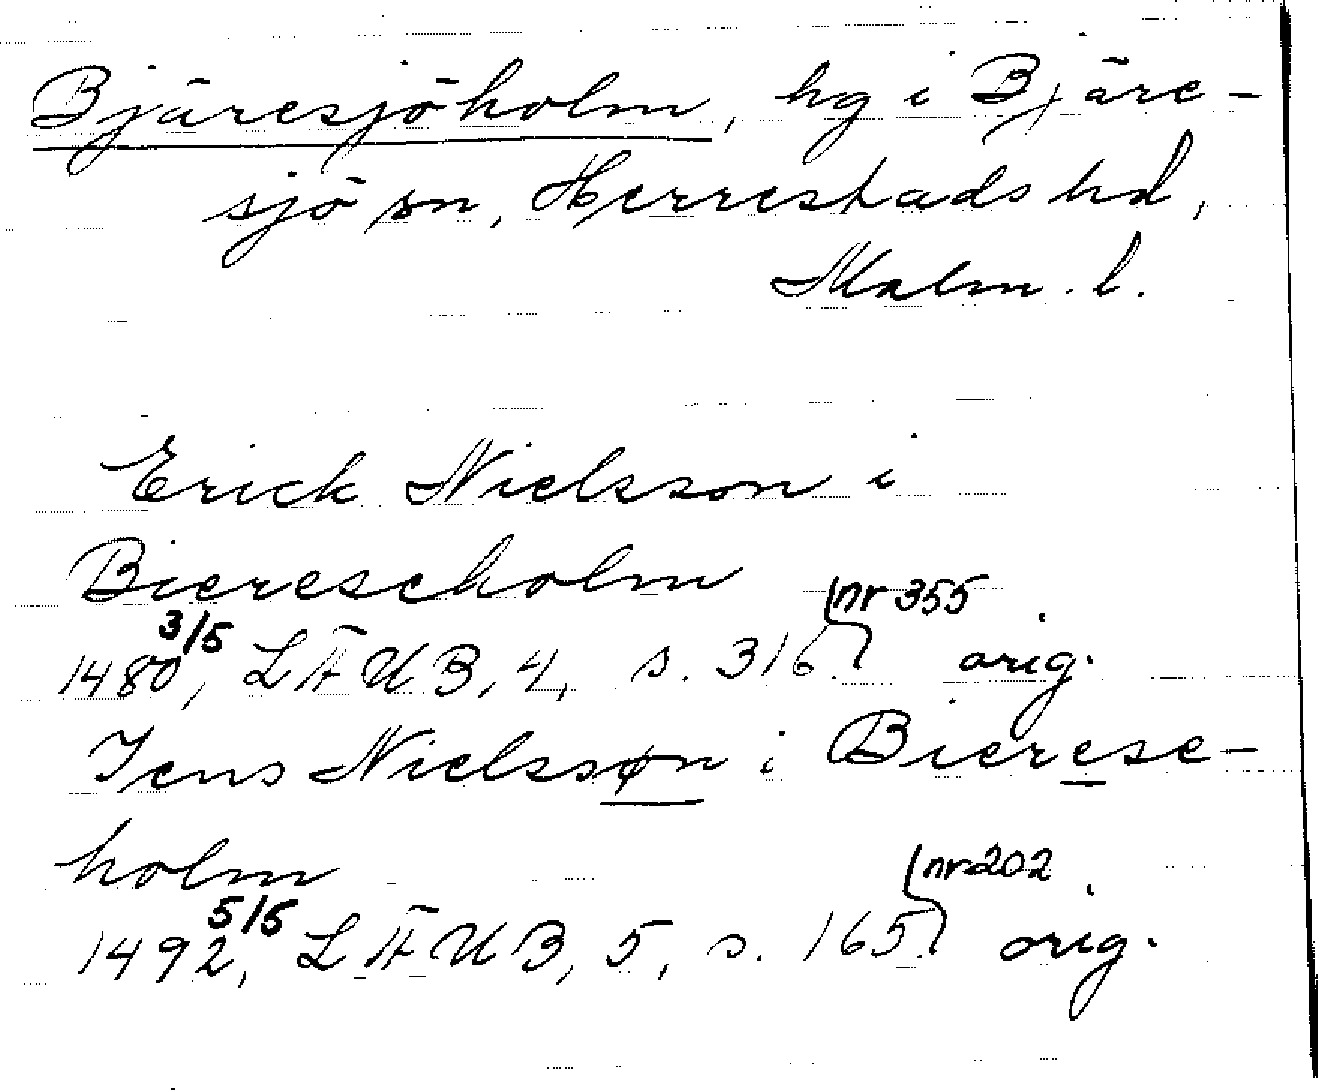 Bjäresjöholm, hg i Bjäre-
sjö sn, Herrestads hd,
Malm. l.
Erick Nielsson i
Bierescholm
1480 3/5, LÄUB, 4, s. 316. nr 355 orig.
Jens Nielssøn i Bierese-
holm
1492 5/5, LÄUB, 5, s. 165. nr 202 orig.